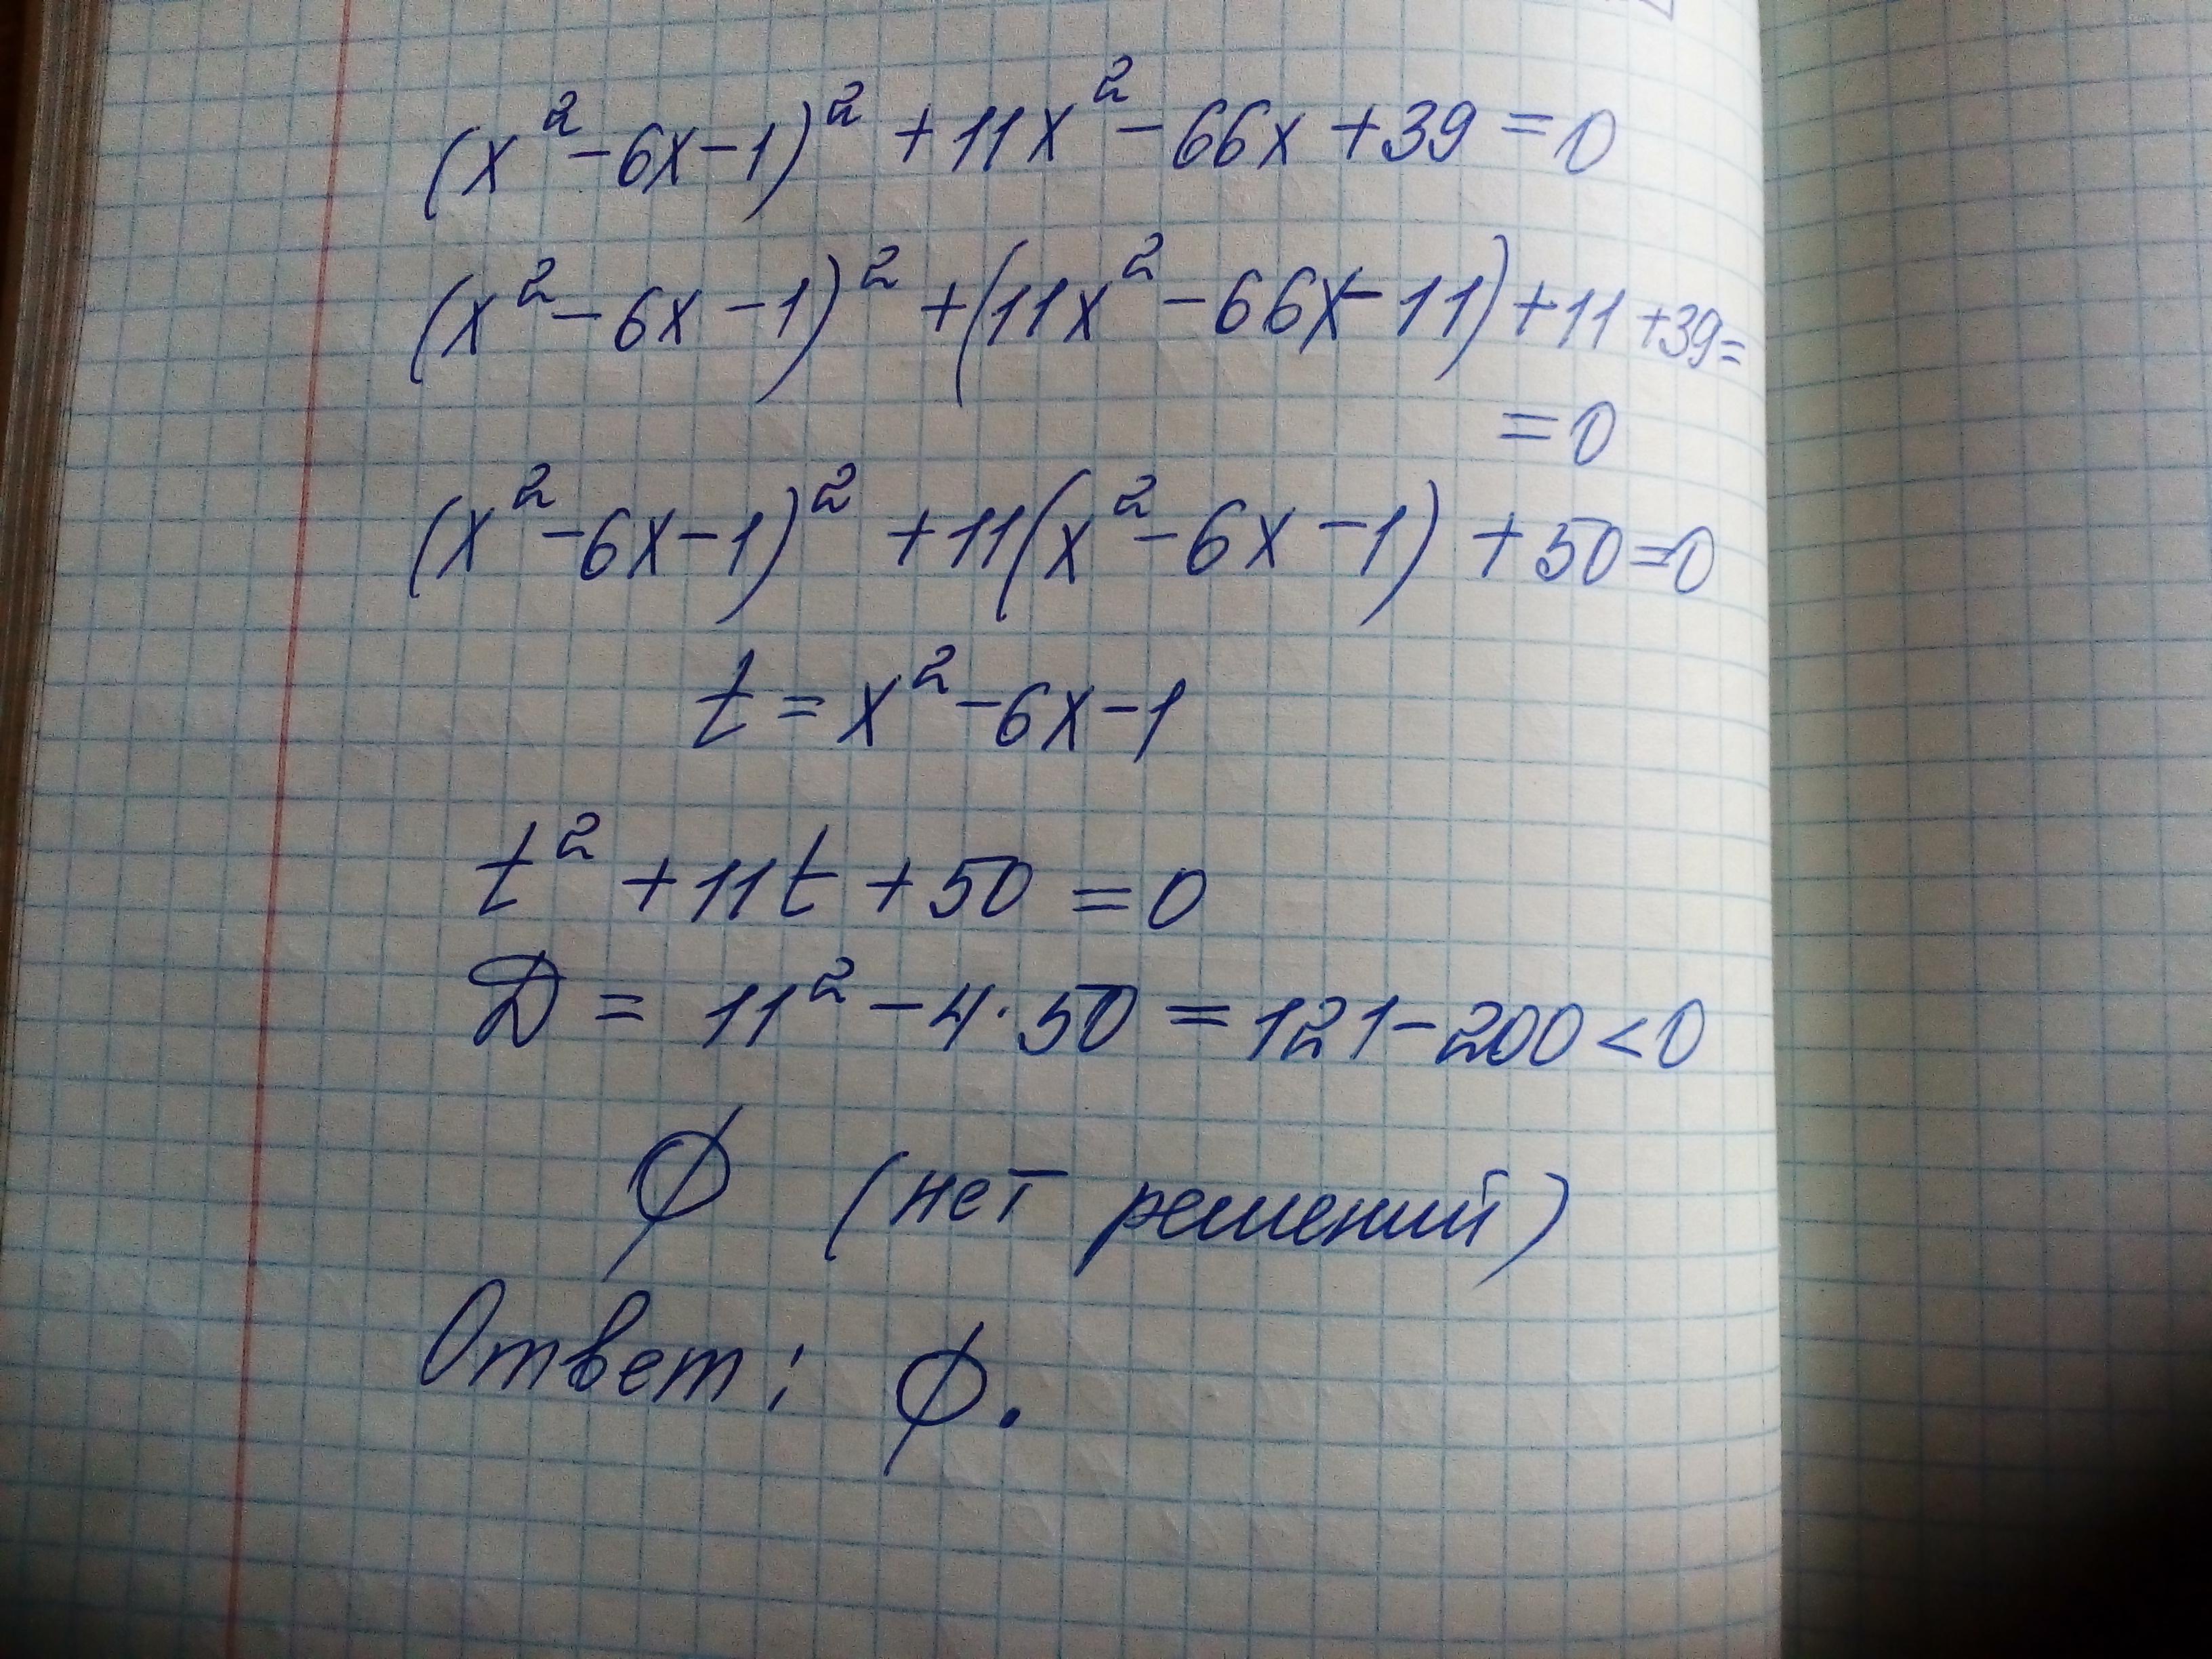 (x²-6x-1)²+11x²-66x+39=0
(x²-6x-1)²+(11x²-66x-11)+11+39=
=0
(x²-6x-1)²+11(x²-6x-1)+50=0
t=x²-6x-1
t²+11t+50=0
D=11²-4·50=121-200<0
∅ (нет решений)
Ответ: ∅.